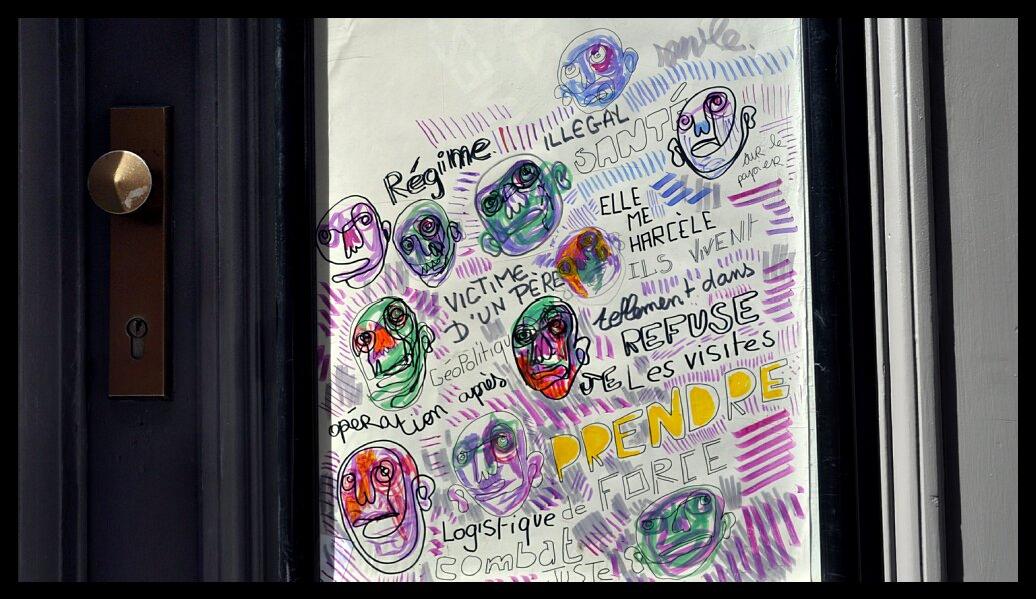 ILLEGAL
SANTÉ
Régime
sur le
papier
ELLE
ME
HARCÈLE
ILS VIVENT
VICTIME
D'UN PÈRE
tellement dans
REFUSE
GéoPolitiqu
JE Les visites
opération après
PRENDRE
FORCE
Logistique de
combat
JUSTE